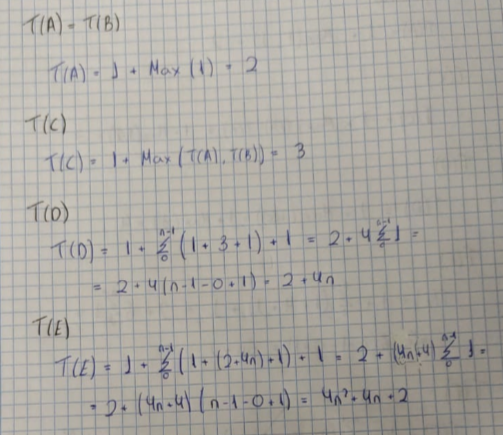 T(A) = T(B)
T(A) = 1 + Max (1) = 2
T(C)
T(C) = 1 + Max (T(A), T(B)) = 3
T(D)
T(D) = 1 + Σ₀ⁿ⁻¹ (1 + 3 + 1) + 1 = 2 + 4 Σ₀ⁿ⁻¹ 1 =
= 2 + 4(n-1-0+1) = 2 + 4n
T(E)
T(E) = 1 + Σ₀ⁿ⁻¹ (1 + (2+4n) + 1) + 1 = 2 + (4n+4) Σ₀ⁿ⁻¹ 1 =
= 2 + (4n+4) (n-1-0+1) = 4n² + 4n + 2